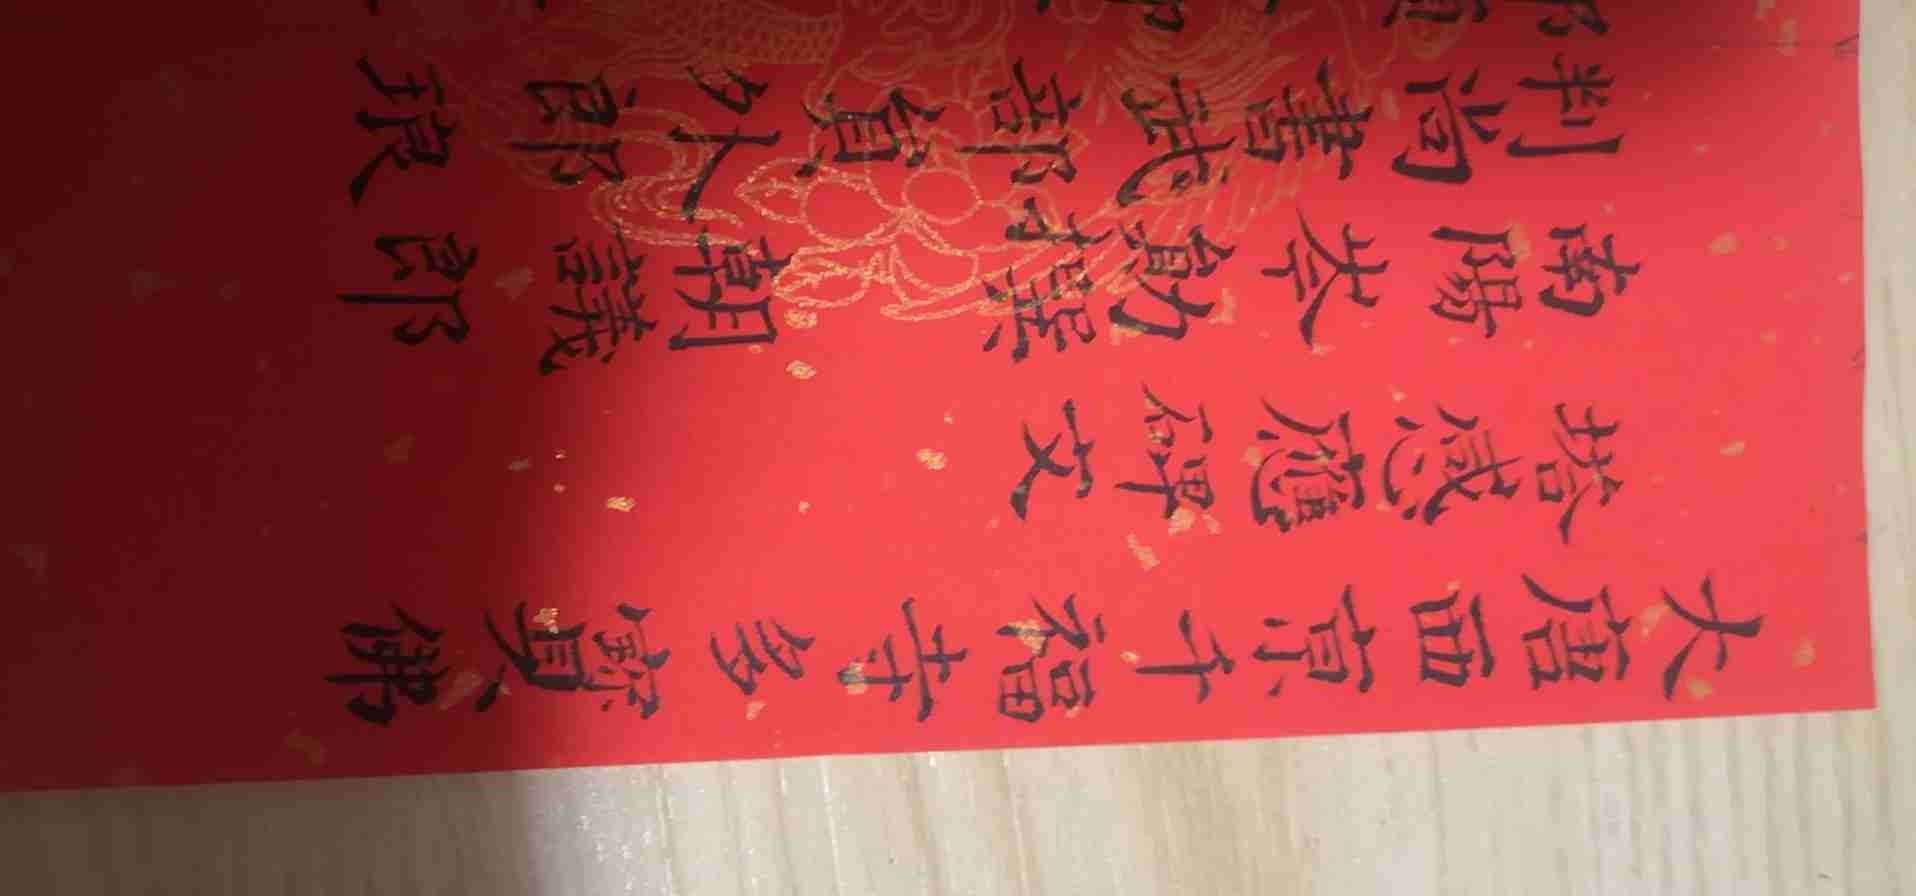 大唐西京千福寺多寶佛
塔感應碑文
南陽岑勛撰 朝議郎
判尚書武部員外郎琅